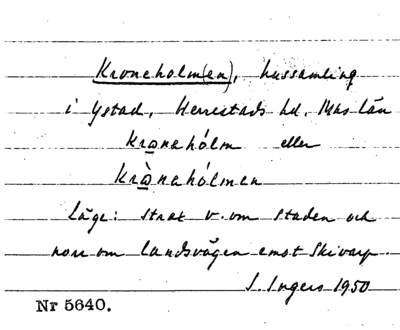 Kroneholm(en), hussamling
i Ystad, Herrestads hd, Mas län
kronehólm eller
krònehólmen
Läge: strax v. om staden och
norr om landsvägen emot Skivarp.
I. Ingers 1950
Nr 5640.